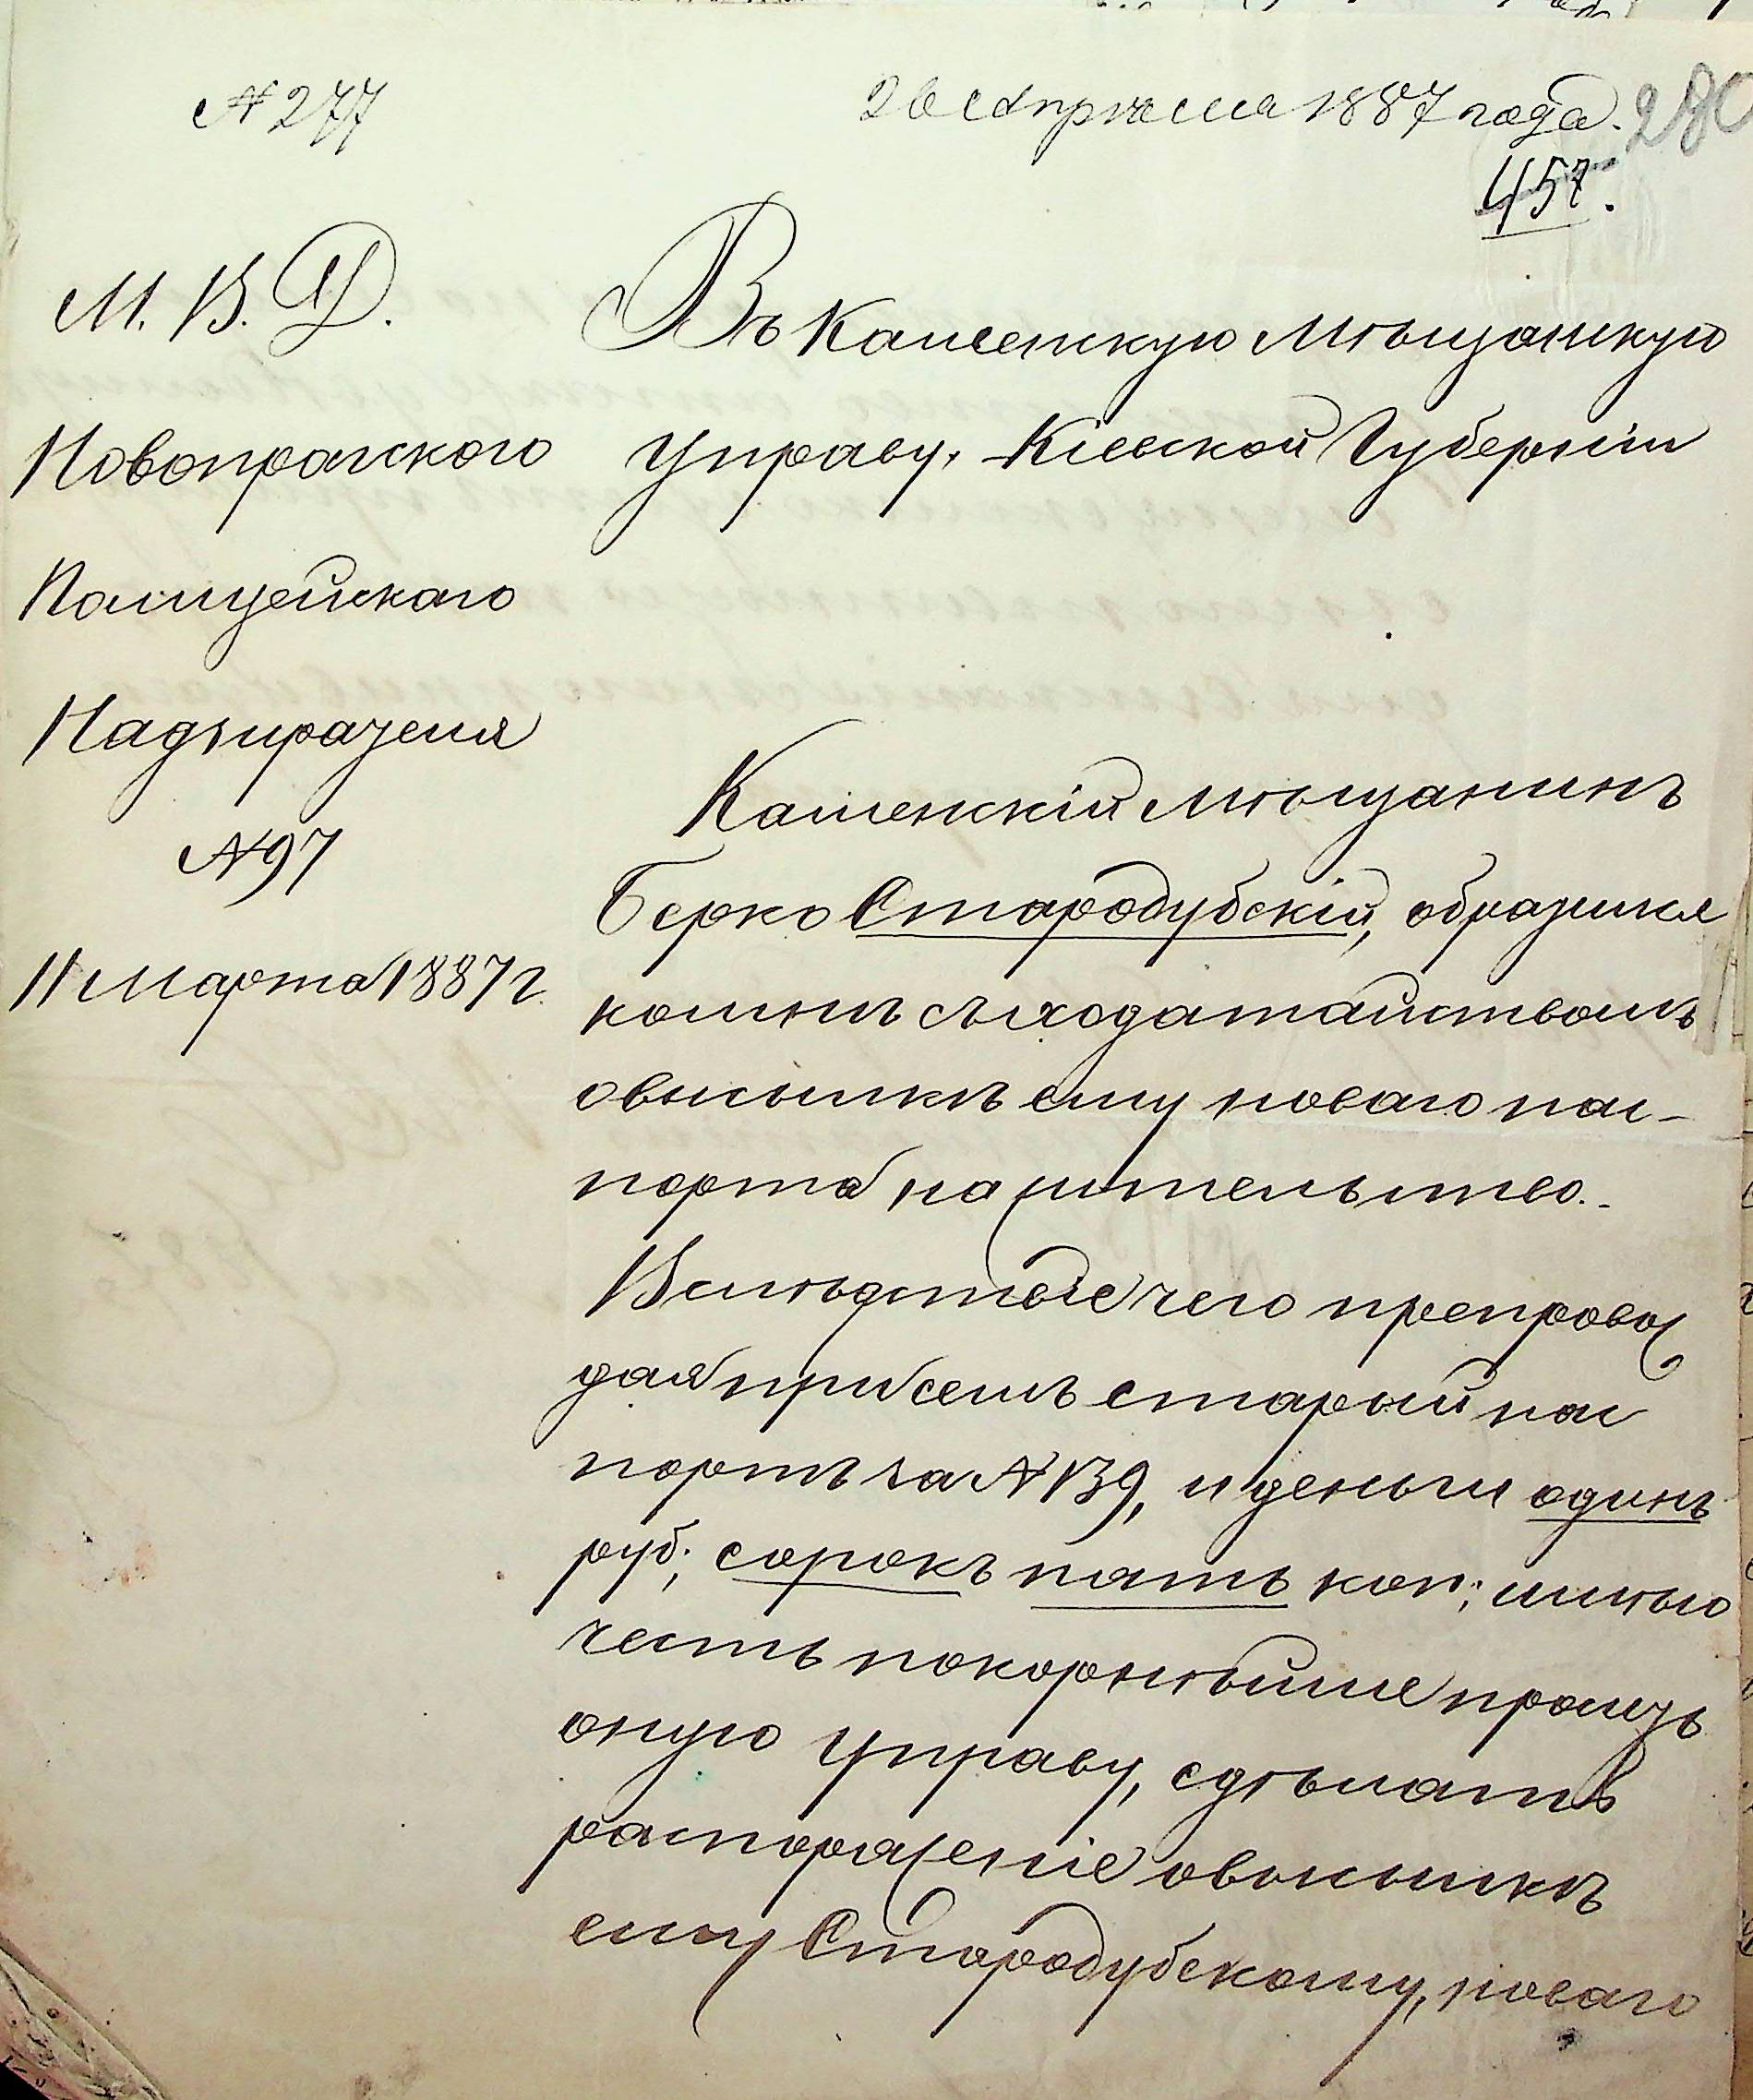 № 277
26 Апреля 1887 года.
280
457.
М. В. Д.
Новопрагского
Полицейскаго
Надзирателя
№ 97
11 Марта 1887 г.
Въ Каменскую Мѣщанскую
Управу, Кіевской Губерніи
Каменскій мѣщанинъ
Берко Стародубскій, обратился
ко мнѣ съ ходатайствомъ
о высылкѣ ему новаго пас-
порта на жительство.
Вслѣдствіе чего препровож
дая при семъ старый пас
портъ за № 139, и деньги одинъ
руб; сорокъ пять коп; имѣю
честь покорнѣйше просить
оную Управу, сдѣлать
распоряженіе о высылкѣ
ему Стародубскому, новаго